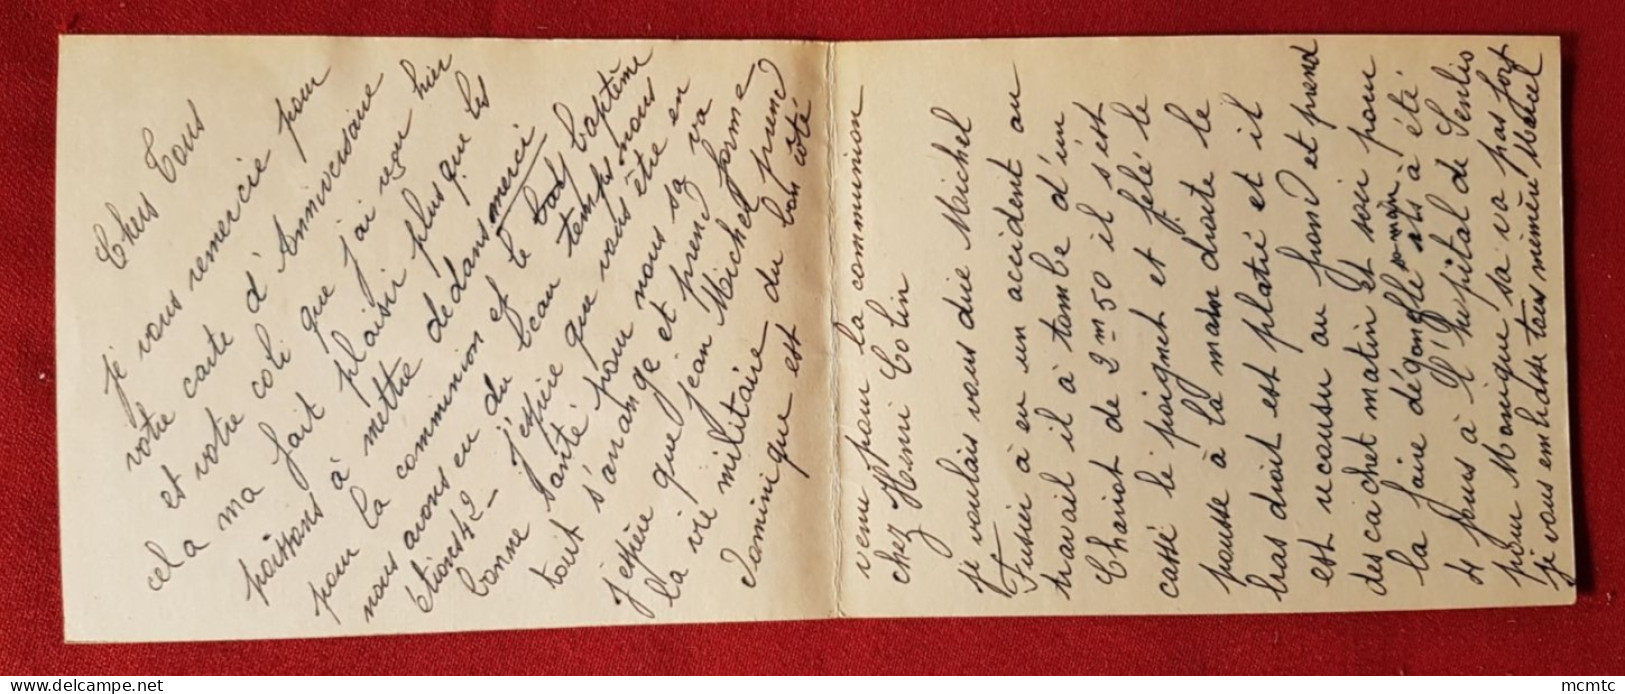 Chers Tous
je vous remercie pour
votre carte d'Anniversaire
et votre coli que j'ai reçu hier
cel a ma fait plaisir plus que les
poissons à mettre dedans merci
pour la communion et le baptême
nous avons eu du beau temps nous
étions 42 - j'espère que vous être en
bonne santé pour nous sa va
tout s'arrange et prend forme
j'espère que jean Michel prend
la vie militaire du bon côté
Dominique est
venu pour la communion
chez Henri Colin
je voulais vous dire Michel
Fusier à eu un accident au
travail il à tombe d'un
Chariot de 2m50 il s'est
cassé le poignet et fêlé le
pousse à la main droite le
bras droit est platré et il
est recousu au front et prend
des cachet matin et soir pour
la faire dégonflé sa main il à été
4 jours à l'hopital de Senlis
pour Monique sa va pas fort
je vous embrasse tous mémère Marcel
mcmtc
delcampe.net